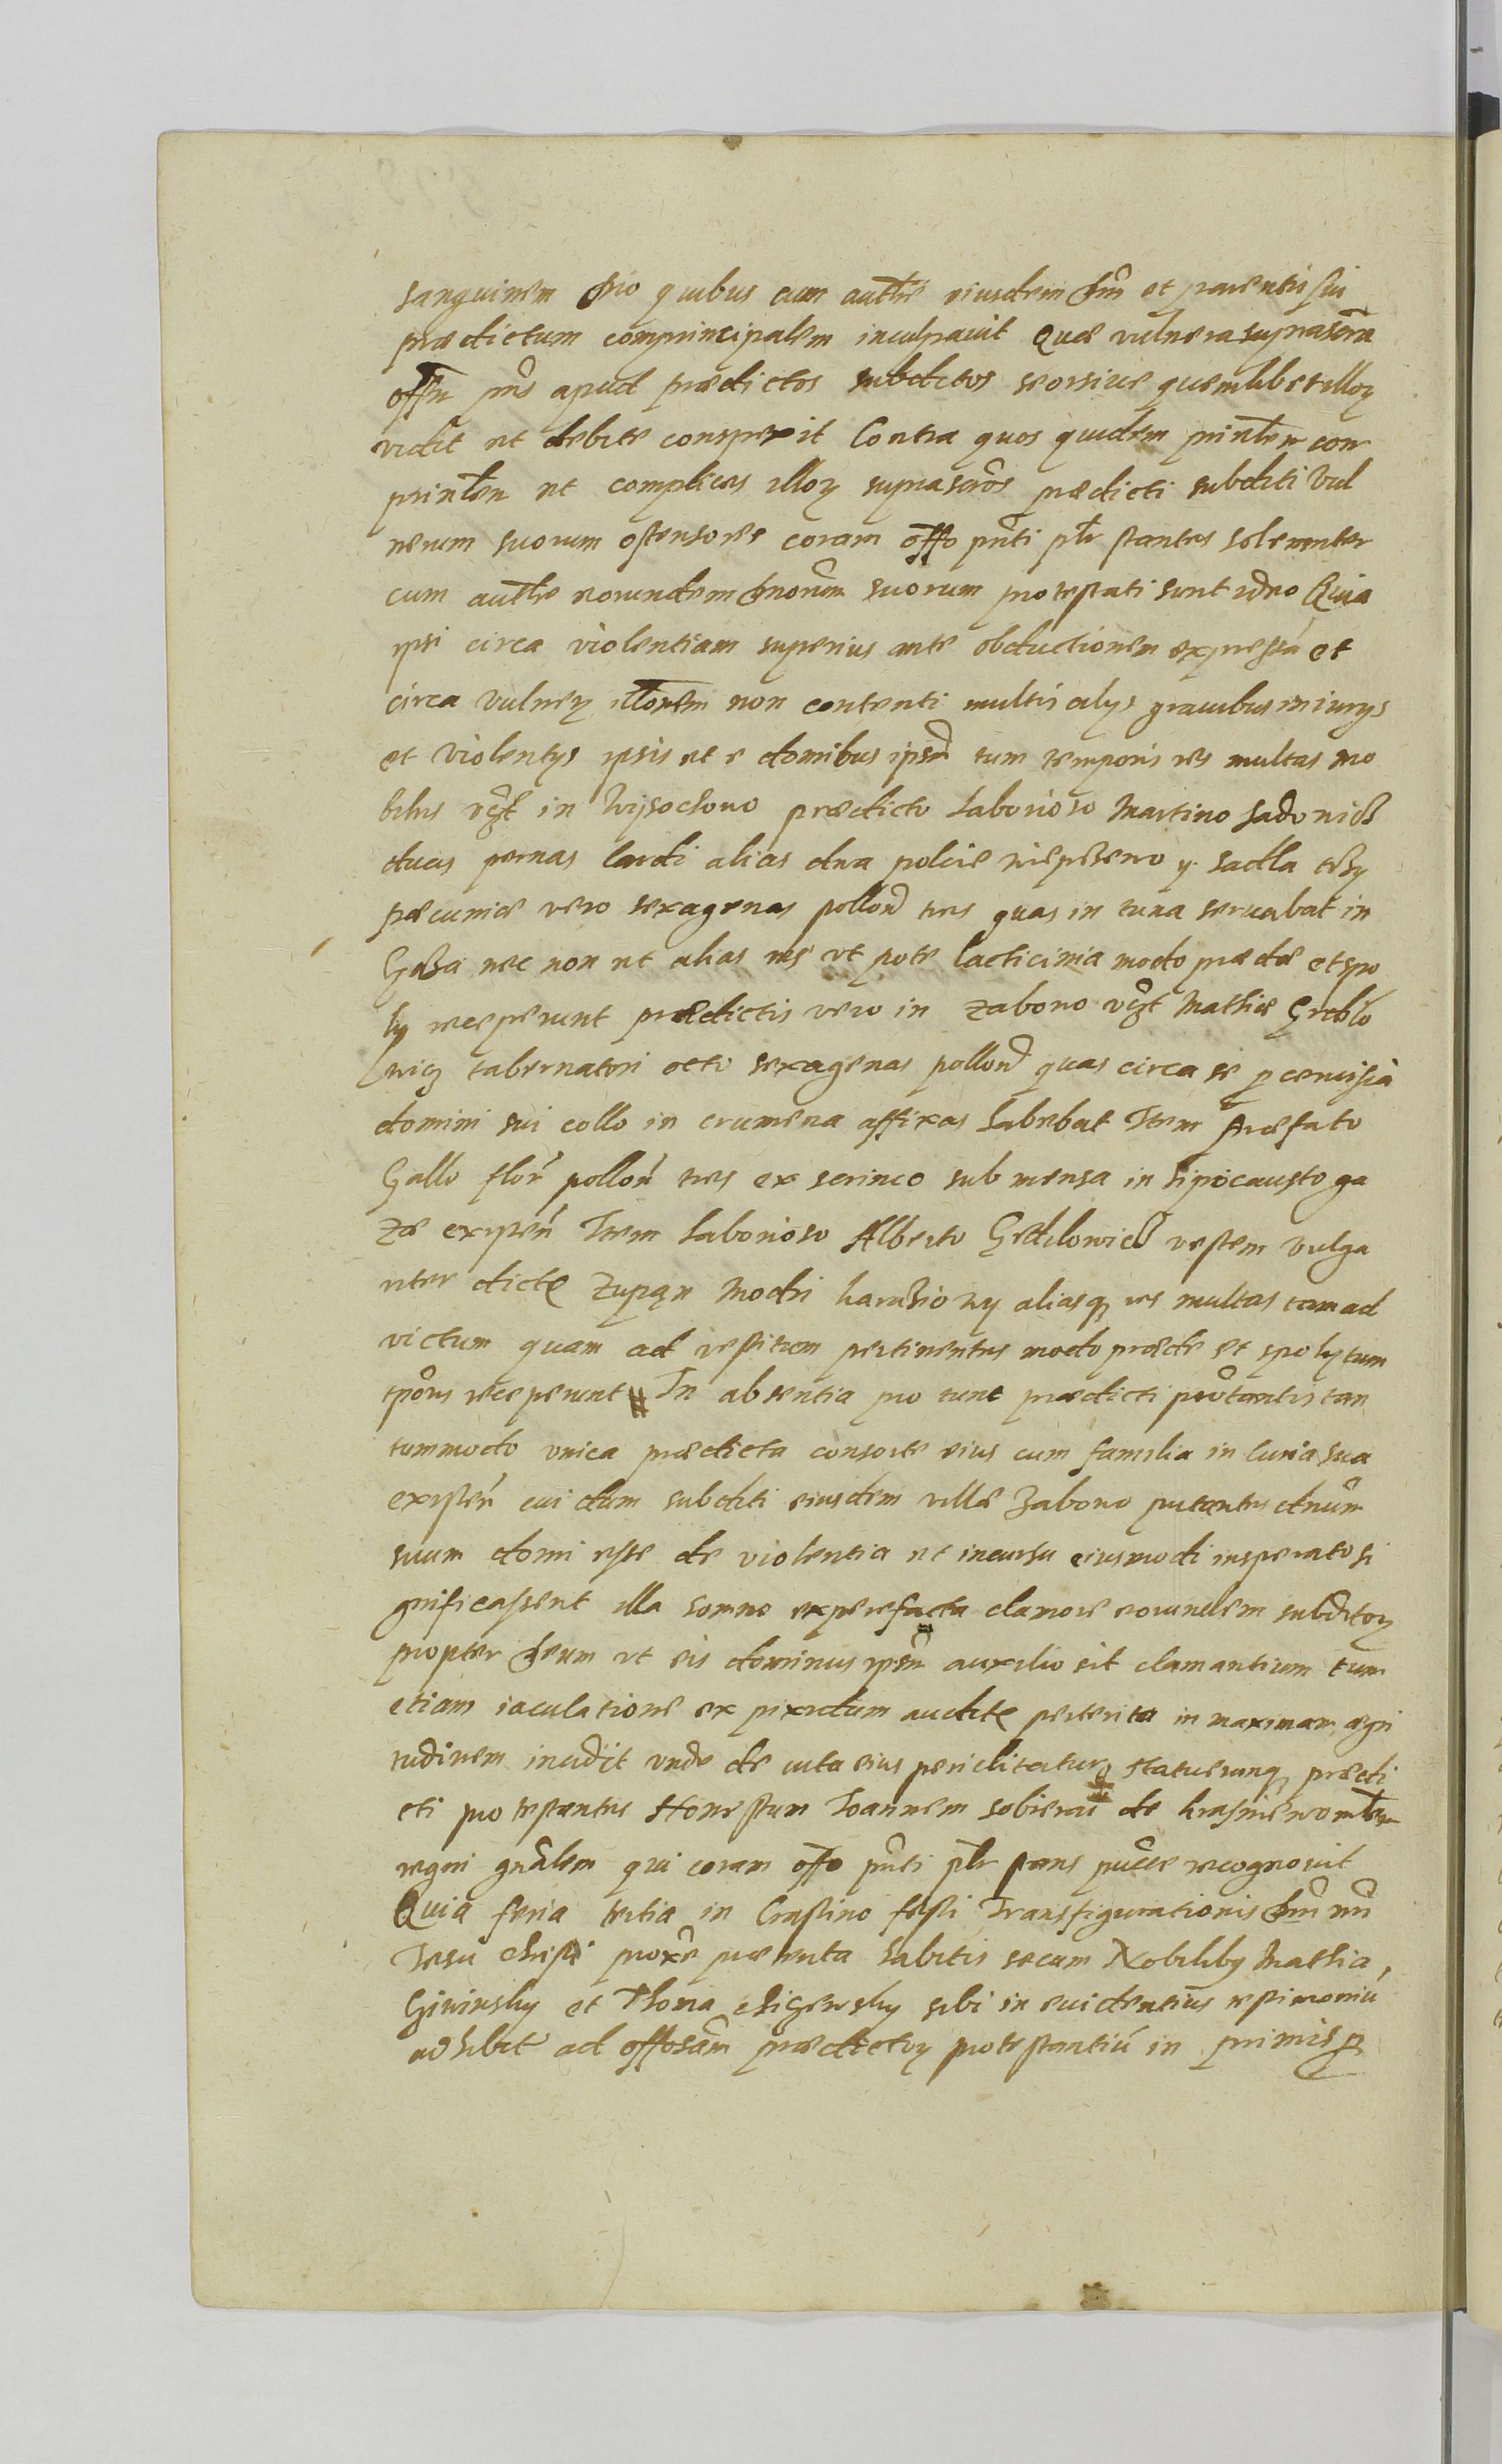 sanguinem Pro quibus cum authte eiusdem dni et parentis sui
prædictum comprincipalem inculpauit Quæ vulnera suprascra
offm pns apud prædictos subditos seorsiue quemlibet illoꝝ
vidit et debite conspexit Contra quos quidem prinlem com
prinlem et complices illoꝝ suprascros prædicti subditi Vul
nerum suorum ostensores coram offo pnti plr stantes solemniter
cum authte eorundem dnorum suorum protestati sunt ideo Quia
ipsi circa violentiam superius ante obductionem expressa et
circa vulneꝝ illonem non contenti multis alys grauibus iniurys
et violentys ipsis et e domibus ipsor tum temporis res multas mo
biles vgt in Wysochowo prædicto Laborioso Martino Sadownich
duas pernas lardi alias dwa polcie wieprzowe y sadla trzy
pæcuniæ vero sexagenas pollon tres quas in tuna seruabat in
Gaza nec non et alias res vt pote lacticinia modo prædæ et spo
ly receperunt prædictis vero in Zabowo vgt Mathiæ Greblo
wicz tabernatori octo sexagenas pollon quas circa se p ceruisia
domini sui collo in crumena affixas habebat Item Præfato
Gallo flor pollon tres ex scrinco sub mensa in hipocausto ga
zæ existen Item Laborioso Alberto Gedilowich vestem vulga
riter dictę Zupąn Modri karaziowy aliasqꝫ res multas tam ad
victum quam ad vestitum pertinentes modo prædæ et spoly tum
tporis receperunt In absentia pro tunc prædicti protantis tan
tummodo vnica prædicta consorte eius cum familia in Curia sua
existen cui dum subditi eiusdem villæ Zabowo putantes dnum
suum domi esse de violentia et incursu eiusmodi insperato si
gnificassent illa somno experefacta clamore eorundem subditoꝝ
propter Deum vt eis dominus ipsor auxilio sit clamantium tum
etiam iaculatione ex pixidum auditę perterita in maximam ægri
tudinem incidit vnde de vita eius periclitatur Statuerunqꝫ prædi
cti protestantes Honestum Ioannem Sobieray de Krasniewo mlem
regni gnalem qui coram offo pnti plr stans publice recognouit
Quia feria tertia in Crastino festi Transfigurationis Dni nri
Iesu Christi proxe præterita habitis secum Nobilibꝫ Mathia
Giwinsky et Thoma Chigewsky sibi in euidentius testimoniu
adhibit ad offosam prædictoꝝ protestantiu in primis p